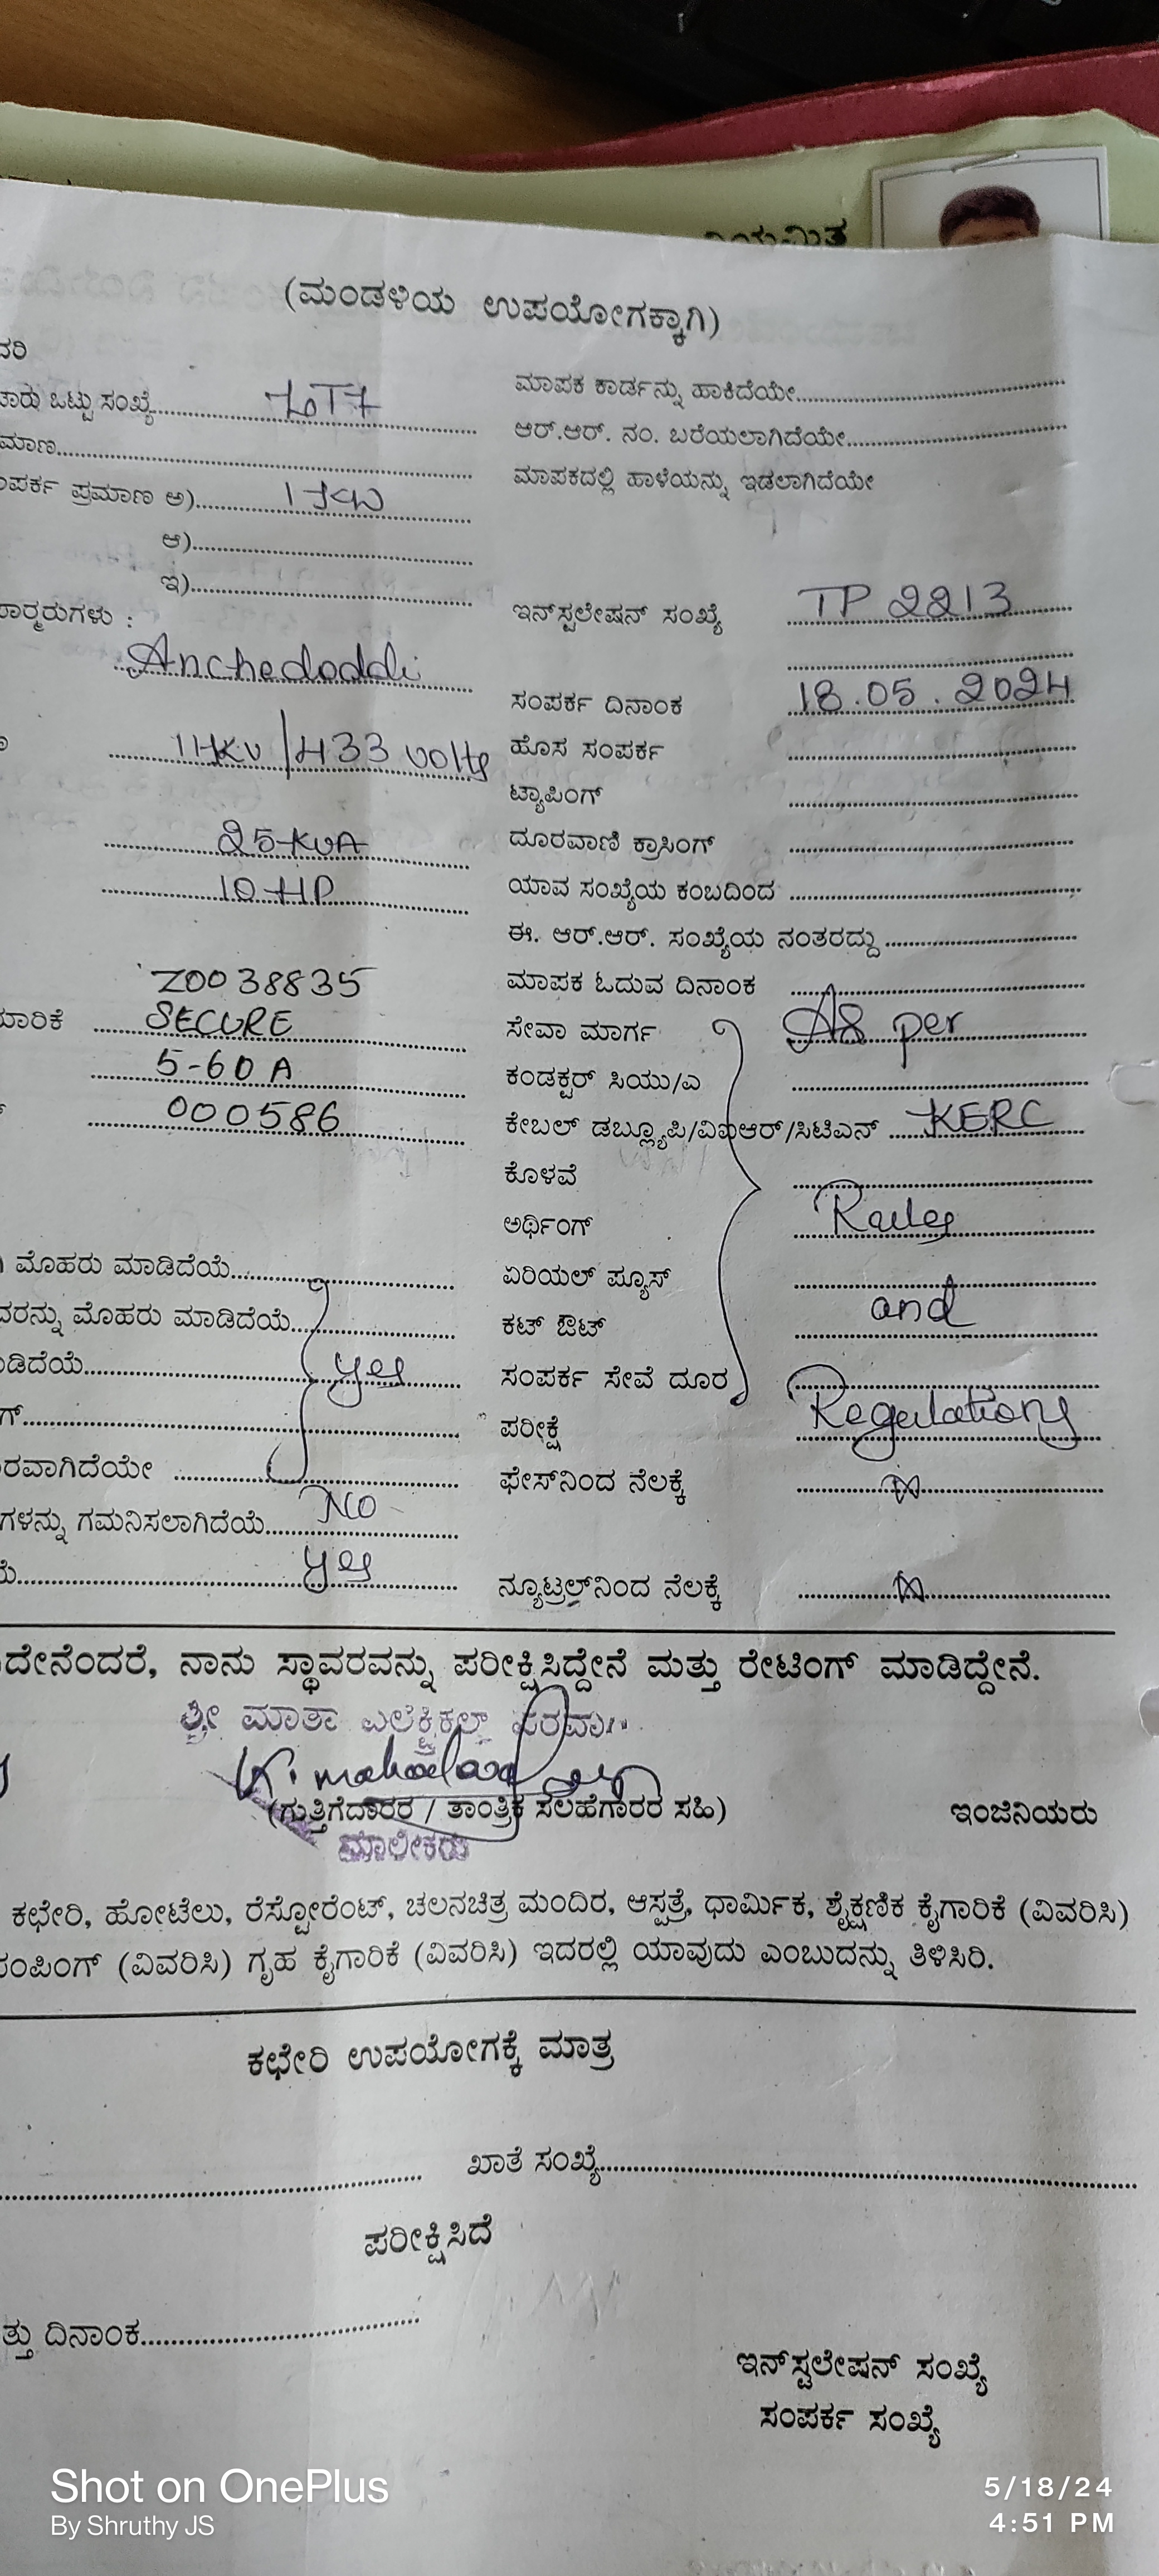 ನಿಯಮಿತ
(ಮಂಡಳಿಯ ಉಪಯೋಗಕ್ಕಾಗಿ)
ಒಟ್ಟು ಸಂಖ್ಯೆ
ಮಾಪಕ ಕಾರ್ಡನ್ನು ಹಾಕಿದೆಯೇ
ಆರ್.ಆರ್. ನಂ. ಬರೆಯಲಾಗಿದೆಯೇ
ಪ್ರಮಾಣ ಅ) 1 KW
ಮಾಪಕದಲ್ಲಿ ಹಾಳೆಯನ್ನು ಇಡಲಾಗಿದೆಯೇ
ಆ)
ಇ)
ಇನ್‌ಸ್ಟಲೇಷನ್ ಸಂಖ್ಯೆ TP 2213
Anchedoddi
ಸಂಪರ್ಕ ದಿನಾಂಕ 18.05.2024
11KV/433 volts
ಹೊಸ ಸಂಪರ್ಕ
ಟ್ಯಾಪಿಂಗ್
25 KVA
ದೂರವಾಣಿ ಕ್ರಾಸಿಂಗ್
10 HP
ಯಾವ ಸಂಖ್ಯೆಯ ಕಂಬದಿಂದ
ಈ. ಆರ್.ಆರ್. ಸಂಖ್ಯೆಯ ನಂತರದ್ದು
Z0038835
ಮಾಪಕ ಓದುವ ದಿನಾಂಕ
SECURE
ಸೇವಾ ಮಾರ್ಗ As per
5-60 A
ಕಂಡಕ್ಟರ್ ಸಿಯು/ಎ
000586
ಕೇಬಲ್ ಡಬ್ಲ್ಯೂಪಿ/ವಿಐಆರ್/ಸಿಟಿಎನ್ KERC
ಕೊಳವೆ
ಅರ್ಥಿಂಗ್ Rules
ಮೊಹರು ಮಾಡಿದೆಯೆ
ಏರಿಯಲ್ ಪ್ಯೂಸ್
ಮೊಹರು ಮಾಡಿದೆಯೆ
ಕಟ್ ಔಟ್ and
yes
ಸಂಪರ್ಕ ಸೇವೆ ದೂರ
ಪರೀಕ್ಷೆ Regulations
ಫೇಸ್‌ನಿಂದ ನೆಲಕ್ಕೆ
ಗಮನಿಸಲಾಗಿದೆಯೆ No
yes
ನ್ಯೂಟ್ರಲ್‌ನಿಂದ ನೆಲಕ್ಕೆ
ನಾನು ಸ್ಥಾವರವನ್ನು ಪರೀಕ್ಷಿಸಿದ್ದೇನೆ ಮತ್ತು ರೇಟಿಂಗ್ ಮಾಡಿದ್ದೇನೆ.
ಶ್ರೀ ಮಾತಾ ಎಲೆಕ್ಟ್ರಿಕಲ್ಸ್
(ಗುತ್ತಿಗೆದಾರರ / ತಾಂತ್ರಿಕ ಸಲಹೆಗಾರರ ಸಹಿ) ಇಂಜಿನಿಯರು
ಮಾಲೀಕರು
ಕಛೇರಿ, ಹೋಟೆಲು, ರೆಸ್ಟೋರೆಂಟ್, ಚಲನಚಿತ್ರ ಮಂದಿರ, ಆಸ್ಪತ್ರೆ, ಧಾರ್ಮಿಕ, ಶೈಕ್ಷಣಿಕ ಕೈಗಾರಿಕೆ (ವಿವರಿಸಿ)
(ವಿವರಿಸಿ) ಗೃಹ ಕೈಗಾರಿಕೆ (ವಿವರಿಸಿ) ಇದರಲ್ಲಿ ಯಾವುದು ಎಂಬುದನ್ನು ತಿಳಿಸಿರಿ.
ಕಛೇರಿ ಉಪಯೋಗಕ್ಕೆ ಮಾತ್ರ
ಖಾತೆ ಸಂಖ್ಯೆ
ಪರೀಕ್ಷಿಸಿದೆ
ದಿನಾಂಕ
ಇನ್‌ಸ್ಟಲೇಷನ್ ಸಂಖ್ಯೆ
ಸಂಪರ್ಕ ಸಂಖ್ಯೆ
Shot on OnePlus
By Shruthy JS
5/18/24
4:51 PM